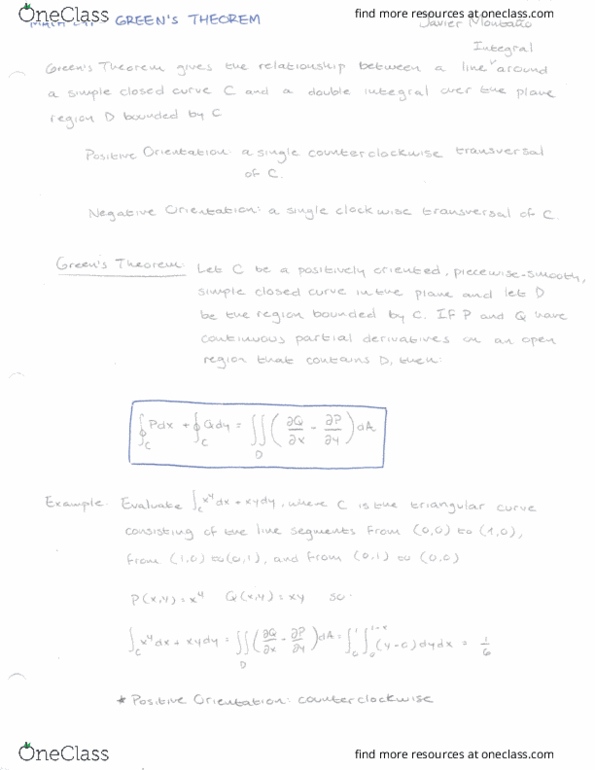 OneClass
find more resources at oneclass.com
GREEN'S THEOREM
Javier Montaño
Integral
Green's Theorem gives the relationship between a line ^ around
a simple closed curve C and a double integral over the plane
region D bounded by C
Positive Orientation: a single counterclockwise transversal
of C.
Negative Orientation: a single clockwise transversal of C.
Green's Theorem: Let C be a positively oriented, piecewise-smooth,
simple closed curve in the plane and let D
be the region bounded by C. IF P and Q have
continuous partial derivatives on an open
region that contains D, then:
∮_C Pdx + ∮_C Qdy = ∬_D (∂Q/∂x - ∂P/∂y) dA
Example: Evaluate ∫_C x⁴dx + xydy, where C is the triangular curve
consisting of the line segments from (0,0) to (1,0),
from (1,0) to (0,1), and from (0,1) to (0,0)
P(x,y) = x⁴ Q(x,y) = xy so:
∫_C x⁴dx + xydy = ∬_D (∂Q/∂x - ∂P/∂y) dA = ∫_0^1 ∫_0^{1-x} (y-0) dydx = 1/6
* Positive Orientation: counterclockwise
OneClass
find more resources at oneclass.com